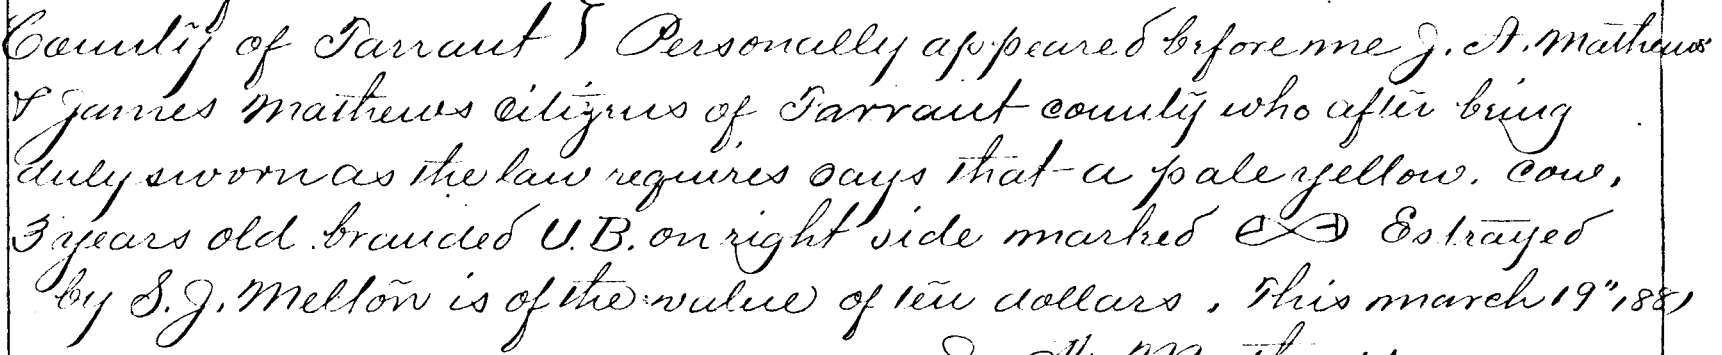 County of Tarrant } Personally appeared before me J. A. Mathews
& James Mathews citizens of Tarrant county who after being
duly sworn as the law requires says that a pale yellow. cow,
3 years old branded U.B. on right side marked Estrayed
by S. J. Melton is of the value of ten dollars. This march 19" 1881